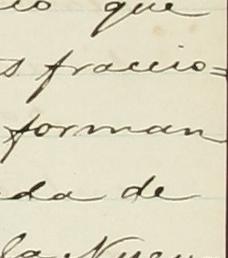 que
fraccio=
forman
da de
la Nuev